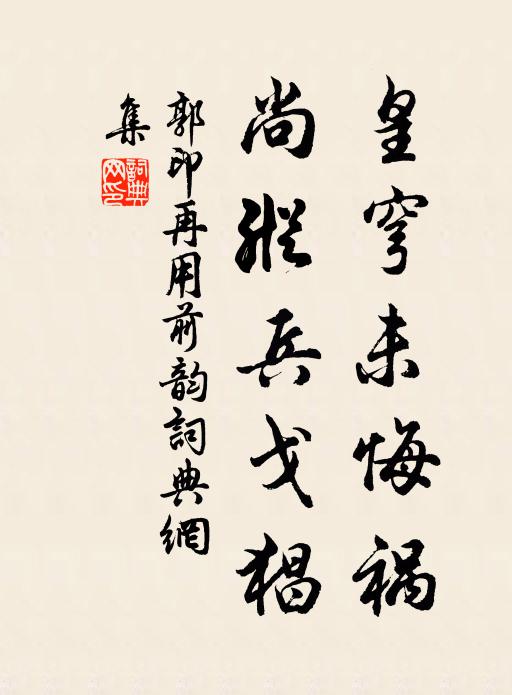 皇穹未悔祸
尚縱兵戈猖
郭印再用前韵詞典網
集
詞典
网印